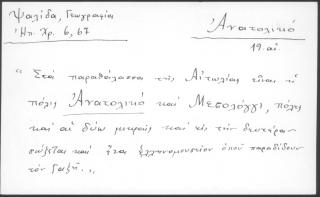 Ψαλίδα, Γεωγραφία
Ἠπ. Χρ. 6, 67
Ἀνατολικό
19. αἰ.
"Στὰ παραθάλασσα τῆς Αἰτωλίας εἶναι ἡ
πόλις Ἀνατολικὸ καὶ Μεσολόγγι, πόλις
καὶ αἱ δύω μικραὶς καὶ εἰς τὴν δευτέραν
σώζεται καὶ ἕνα ἑλληνομουσεῖον ὁποῦ παραδίδουν
τὸν Γαζῆ.„